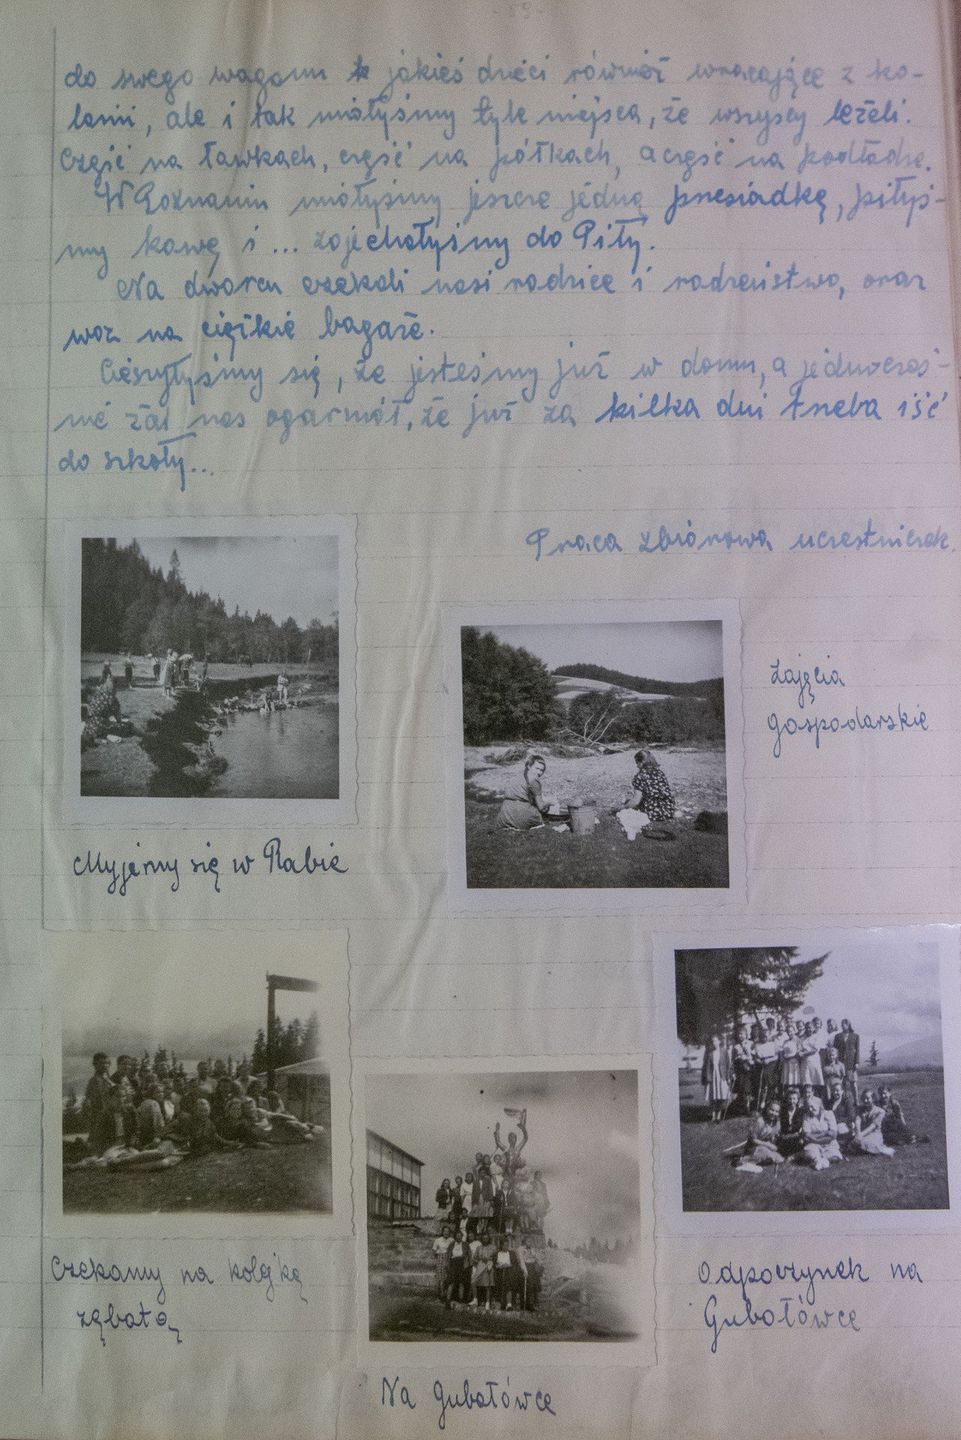 - 89 -
do swego wagonu jakieś dzieci również wracające z ko-
lonii, ale i tak miałyśmy tyle miejsca, że wszyscy leżeli.
Część na ławkach, część na półkach, a część na podłodze.
W Poznaniu miałyśmy jeszcze jedną przesiadkę, piłyś-
my kawę i ... zajechałyśmy do Piły.
Na dworcu czekali nasi rodzice i rodzeństwo, oraz
wóz na ciężkie bagaże.
Cieszyłyśmy się, że jesteśmy już w domu, a jednocześ-
nie żal nas ogarniał, że już za kilka dni trzeba iść
do szkoły...
Praca zbiorowa uczestniczek.
Zajęcia
gospodarskie
Myjemy się w Rabie
Czekamy na kolejkę
zębatą
Odpoczynek na
Gubałówce
Na Gubałówce